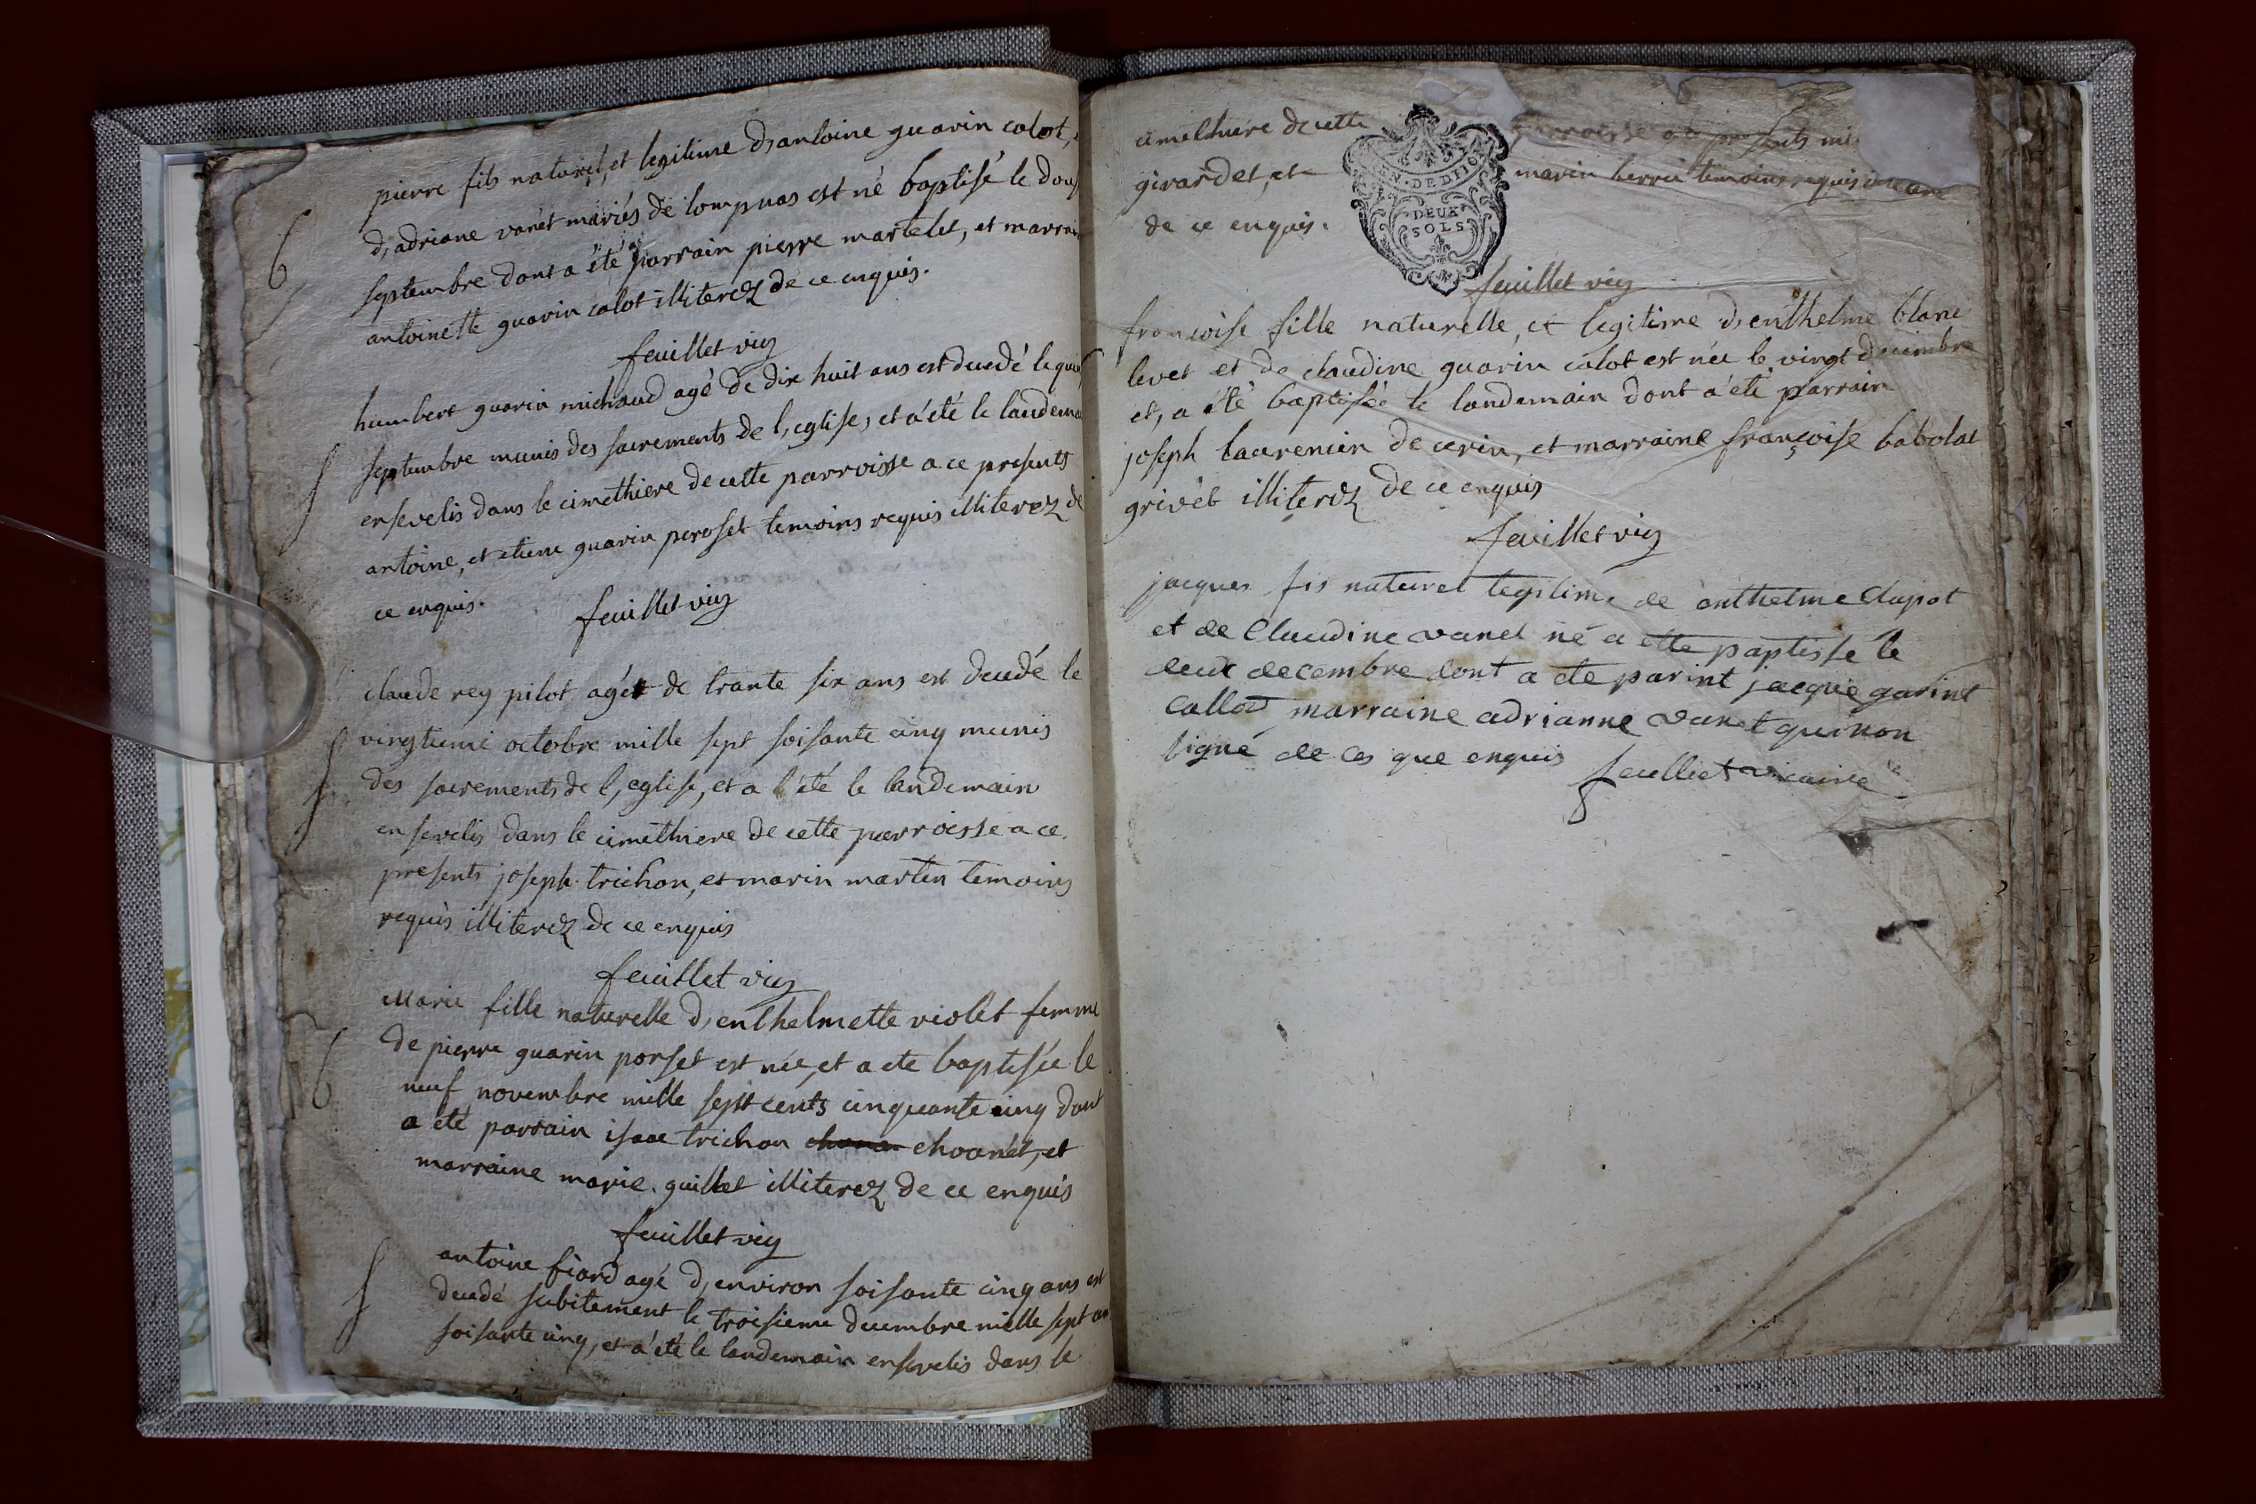 pierre fils naturel, et legitime d,antoine guarin calot,
d,adriane vanét mariés de lompnas est né baptisé le douz
septembre dont a été parrain pierre martelet, et marrain
antoinette guarin calot illiterez de ce enquis.
feuillet vic
humbert guarin michaud agé de dix huit ans est decedé le quin
septembre munis des sacrements de l,eglise, et a été le landema
ensevelis dans le cimethiere de cette parroisse a ce presents
antoine, et etiene guarin peroset temoins requis illiterez de
ce enquis.
feuillet vic
claude rey pilot agét de trante six ans est decedé le
vingtieme octobre mille sept soisante cinq munis
des sacrements de l,eglise, et a été le landemain
ensevelis dans le cimethiere de cette parroisse a ce
presents joseph trichon, et marin martin temoins
requis illiterez de ce enquis
feuillet vic
Marie fille naturelle d,enthelmette violet femme
de pierre guarin porset est née, et a ete baptisée le
neuf novembre mille sept cents cinquante cinq dont
a été parrain isaac trichon chovnét, et
marraine marie guillet illiterez de ce enquis
feuillet vic
antoine fiard agé d,environ soisante cinq ans est
decedé subitement le troisieme decembre mille sept
soisante cinq, et a été le landemain ensevelis dans le
cimethiere de cette parroisse a ce presents
girardet, et marin temoins requis
de ce enquis.
DEUX
SOLS
feuillet vic
françoise fille naturelle, et legitime d,enthelme blanc
levet et de claudine guarin calot est née le vingt decembre
et, a été baptisée le landemain dont a été parrain
joseph laurencin de cerin, et marraine françoise babolat
grivét illiterez de ce enquis
feuillet vic
jacques fis naturel legitime de anthelme Chapot
et de Claudine vanel né a ette paptisse le
deux decembre dont a ete parint jacque garint
Callot marraine adrianne vanet qui non
signé de ces que enquis
feulliet vicaire